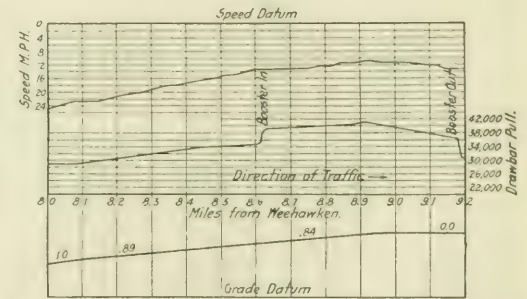 Speed Datum
0
4
8
12
16
20
24
Speed M.P.H.
Booster In
Booster Out
42,000
38,000
34,000
30,000
26,000
22,000
Drawbar Pull.
Direction of Traffic
8.0 8.1 8.2 8.3 8.4 8.5 8.6 8.7 8.8 8.9 9.0 9.1 9.2
Miles from Weehawken.
.10 .89 .84 0.0
Grade Datum